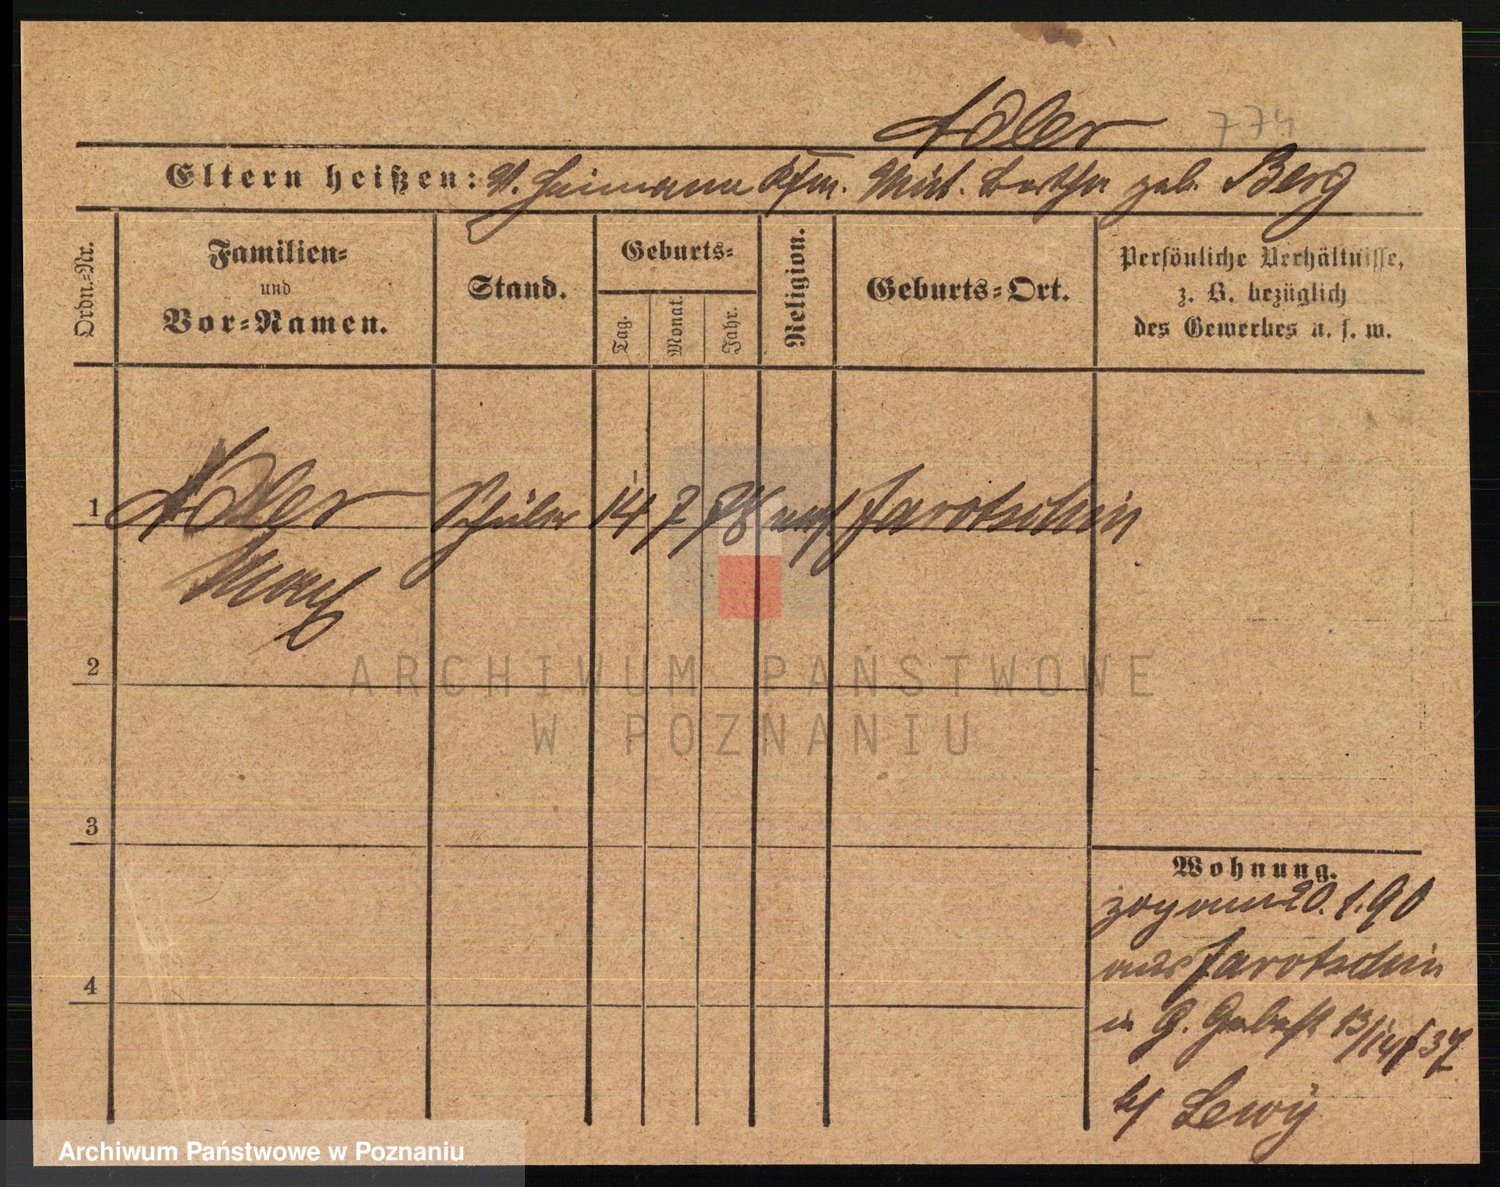 Adler 774
Eltern heißen: V. Heimann Kfm. Mutt. Bertha geb. Berg
Ordn.-Nr.
Familien-
und
Vor-Namen.
Stand.
Geburts-
Tag.
Monat.
Jahr.
Religion.
Geburts-Ort.
Persönliche Verhältnisse,
z. B. bezüglich
des Gewerbes u. s. w.
1 Adler Schüler 14/7 78 mos. Jarotschin
Max
2
ARCHIWUM PAŃSTWOWE
W POZNANIU
3
Wohnung.
zog am 20.1.90
aus Jarotschin
4
in G. 13/14 37
b/ Lewy
Archiwum Państwowe w Poznaniu